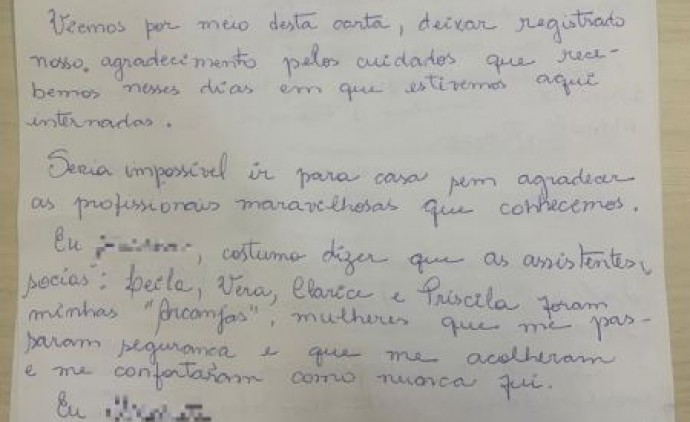 Viemos por meio desta carta, deixar registrado
nosso. agradecimento pelos cuidados que rece-
bemos nesses dias em que estivemos aqui
internadas.
Seria impossível ir para casa sem agradecer
as profissionais maravilhosas que conhecemos.
Eu , costumo dizer que as assistentes
socias: Leila, Vera, Clarice e Priscila foram
minhas "Arcanjas", mulheres que me pas-
saram seguranca e que me acolheram
e me confortaram como nunca fui.
Eu